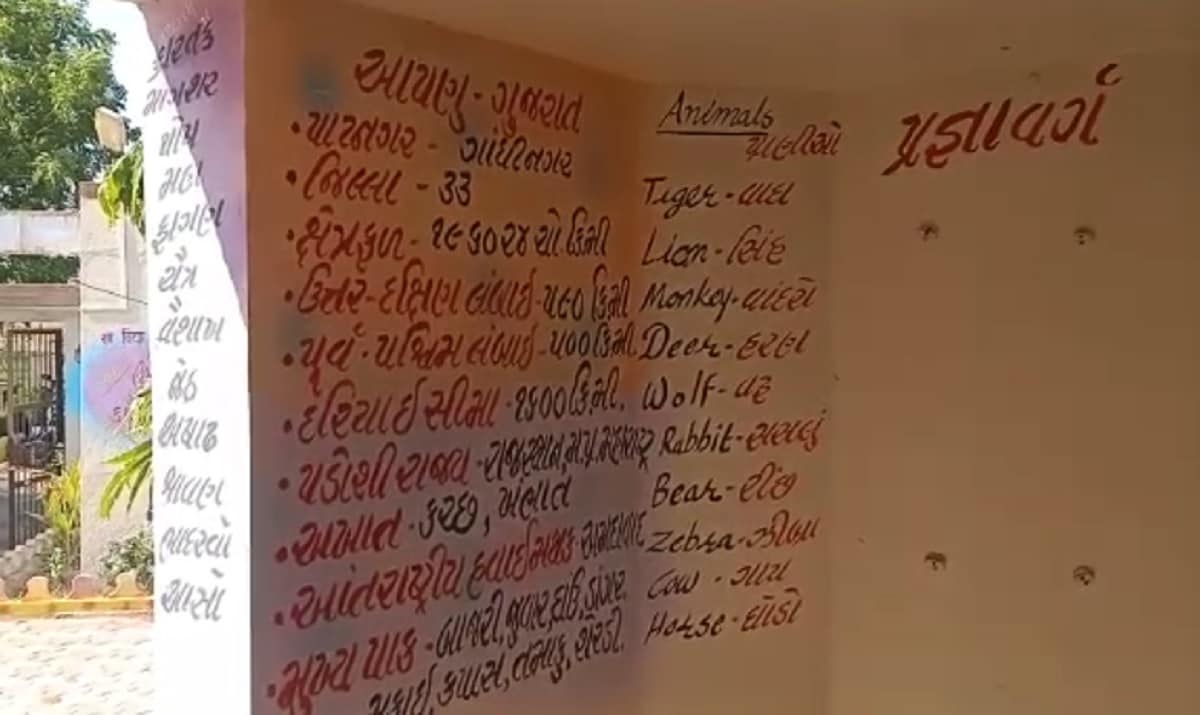 કારતક
માગશર
પોષ
મહા
ફાગણ
ચૈત્ર
વૈશાખ
જેઠ
અષાઢ
શ્રાવણ
ભાદરવો
આસો
આપણુ - ગુજરાત
• પાટનગર - ગાંધીનગર
• જિલ્લા - ૩૩
• ક્ષેત્રફળ - ૧૯૬૦૨૪ ચો. કિમી
• ઉત્તર - દક્ષિણ લંબાઈ - ૫૯૦ કિ.મી
• પૂર્વ - પશ્ચિમ લંબાઈ - ૫૦૦ કિ.મી.
• દરિયાઈ સીમા - ૧૬૦૦ કિ.મી.
• પડોશી રાજ્ય - રાજસ્થાન, મ.પ્ર. મહારાષ્ટ્ર
• અખાત - કચ્છ, ખંભાત
• આંતરાષ્ટ્રીય હવાઈમથક - અમદાવાદ
• મુખ્ય પાક - બાજરી, જુવાર, ઘઉં, ડાંગર,
મકાઈ, કપાસ, તમાકુ, શેરડી.
Animals
પ્રાણીઓ
Tiger - વાઘ
Lion - સિંહ
Monkey - વાંદરો
Deer - હરણ
Wolf - વરૂ
Rabbit - સસલું
Bear - રીંછ
Zebra - ઝીબ્રા
Cow - ગાય
Horse - ઘોડો
પ્રજ્ઞાવર્ગ